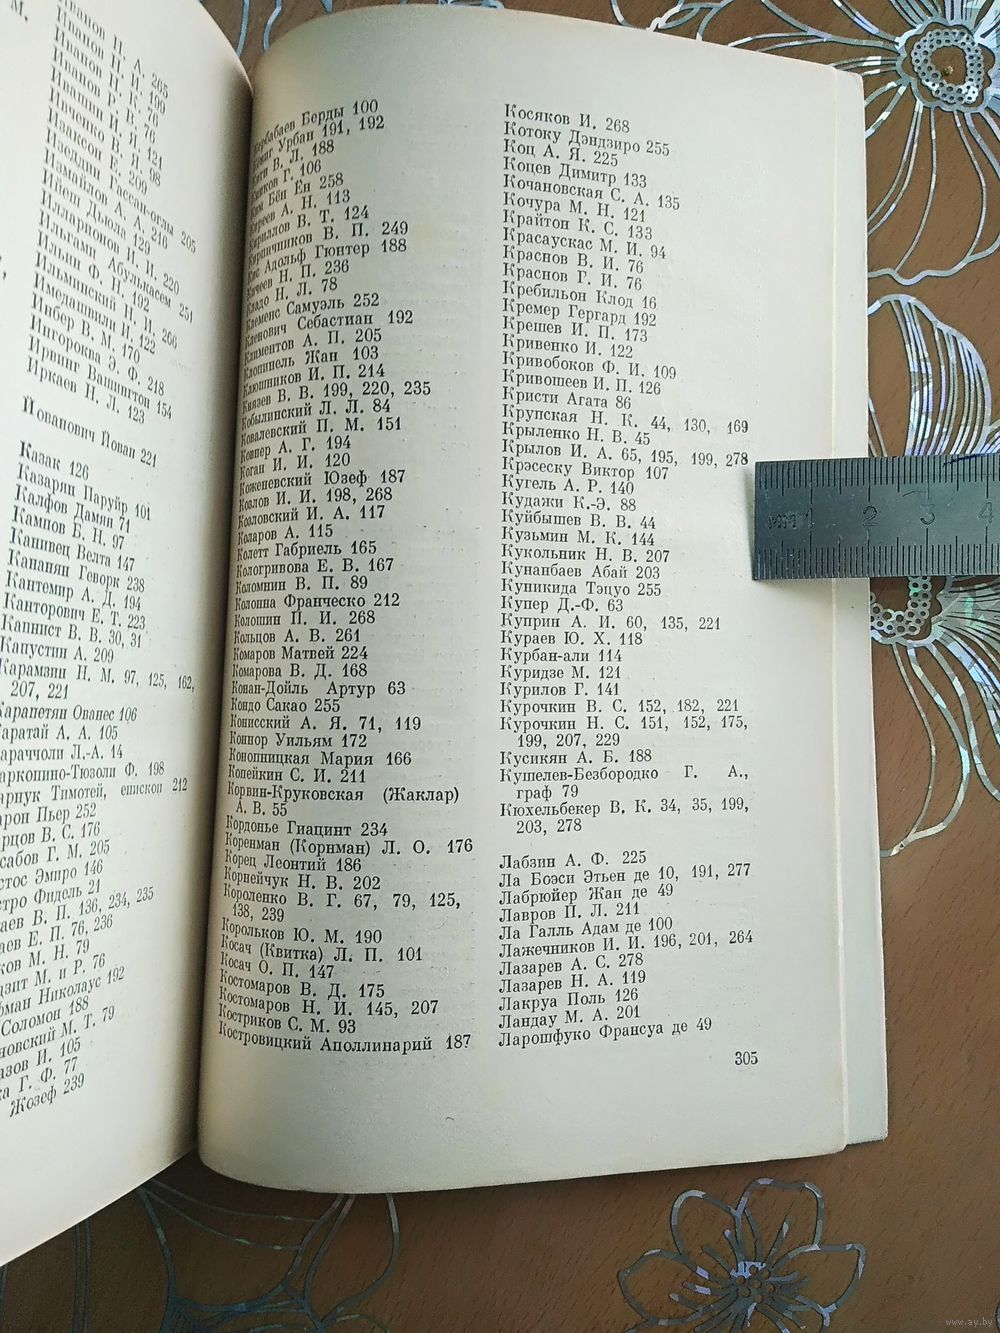 М.
Иванов П. А. 205
Иванов Н. И. 199
Иванов Н. К. 76
Иванов Р. В. 76
Ивашин И. Я. 121
Ивченко В. Я. 98
Изаксон Е. 209
Изеддин Гассан-оглы 205
Измайлов А. А. 216
Ийеш Дьюла 129
Илларионов И. И. 220
Ильгами Абулькасем 251
Ильин Ф. Н. 192
Ильминский Н. И. 266
Имедашвили И. 122
Инбер В. М. 170
Ингороква Э. Ф. 218
Ирвинг Вашингтон 154
Иркаев Н. Л. 123
Йованович Йован 221
Казак 126
Казарян Паруйр 101
Калфов Дамян 71
Кампов Б. Н. 97
Канивец Велта 147
Кананян Геворк 238
Кантемир А. Д. 194
Канторович Е. Т. 223
Капнист В. В. 30, 31
Капустин А. 209
Карамзин Н. М. 97, 125, 162,
207, 221
Карапетян Ованес 106
аратай А. А. 105
араччоли Л.-А. 14
аркопино-Тюзоли Ф. 198
арнук Тимотей, епископ 212
арон Пьер 252
рцов В. С. 176
сабов Г. М. 205
стос Эмиро 146
стро Фидель 21
аев В. П. 136, 234, 235
аев Е. П. 76, 236
ков М. Н. 79
дзит М. и Р. 76
фман Николаус 192
Соломон 188
новский М. Т. 79
азов И. 105
ка Г. Ф. 77
Жозеф 239
Кербабаев Берды 100
Урбан 191, 192
В. Л. 188
Г. 106
Ким Бён Ён 258
Киреев А. Н. 113
Кириллов В. Т. 124
Кирпичников В. П. 249
Адольф Гюнтер 188
Кичеев Н. П. 236
Кладо Н. Л. 78
Клеменс Самуэль 252
Кленович Себастиан 192
Климентов А. П. 205
Клопинель Жан 103
Клюшников И. П. 214
Князев В. В. 199, 220, 235
Кобылинский Л. Л. 84
Ковалевский П. М. 151
Ковнер А. Г. 194
Коган И. И. 120
Коженевский Юзеф 187
Козлов И. И. 198, 268
Козловский И. А. 117
Коларов А. 115
Колетт Габриель 165
Кологривова Е. В. 167
Коломнин В. П. 89
Колонна Франческо 212
Колошин П. И. 268
Кольцов А. В. 261
Комаров Матвей 224
Комарова В. Д. 168
Конан-Дойль Артур 63
Кондо Сакао 255
Конисский А. Я. 71, 119
Коннор Уильям 172
Конопницкая Мария 166
Копейкин С. И. 211
Корвин-Круковская (Жаклар)
А. В. 55
Кордонье Гиацинт 234
Коренман (Корнман) Л. О. 176
Корец Леонтий 186
Корнейчук Н. В. 202
Короленко В. Г. 67, 79, 125,
138, 239
Корольков Ю. М. 190
Косач (Квитка) Л. П. 101
Косач О. П. 147
Костомаров В. Д. 175
Костомаров Н. И. 145, 207
Костриков С. М. 93
Костровицкий Аполлинарий 187
Косяков И. 268
Котоку Дэндзиро 255
Коц А. Я. 225
Коцев Димитр 133
Кочановская С. А. 135
Кочура М. Н. 121
Крайтон К. С. 133
Красаускас М. И. 94
Краснов В. И. 76
Краснов Г. И. 76
Кребильон Клод 16
Кремер Гергард 192
Крешев И. П. 173
Кривенко И. 122
Кривобоков Ф. И. 109
Кривошеев И. П. 126
Кристи Агата 86
Крупская Н. К. 44, 130, 169
Крыленко Н. В. 45
Крылов И. А. 65, 195, 199, 278
Крэсеску Виктор 107
Кугель А. Р. 140
Кудажи К.-Э. 88
Куйбышев В. В. 44
Кузьмин М. К. 144
Кукольник Н. В. 207
Кунанбаев Абай 203
Куникида Тэцуо 255
Купер Д.-Ф. 63
Куприн А. И. 60, 135, 221
Кураев Ю. Х. 118
Курбан-али 114
Куридзе М. 121
Курилов Г. 141
Курочкин В. С. 152, 182, 221
Курочкин Н. С. 151, 152, 175,
199, 207, 229
Кусикян А. Б. 188
Кушелев-Безбородко Г. А.,
граф 79
Кюхельбекер В. К. 34, 35, 199,
203, 278
Лабзин А. Ф. 225
Ла Боэси Этьен де 10, 191, 277
Лабрюйер Жан де 49
Лавров П. Л. 211
Ла Галль Адам де 100
Лажечников И. И. 196, 201, 264
Лазарев А. С. 278
Лазарев Н. А. 119
Лакруа Поль 126
Ландау М. А. 201
Ларошфуко Франсуа де 49
305
мм 1 2 3 4
www.ay.by